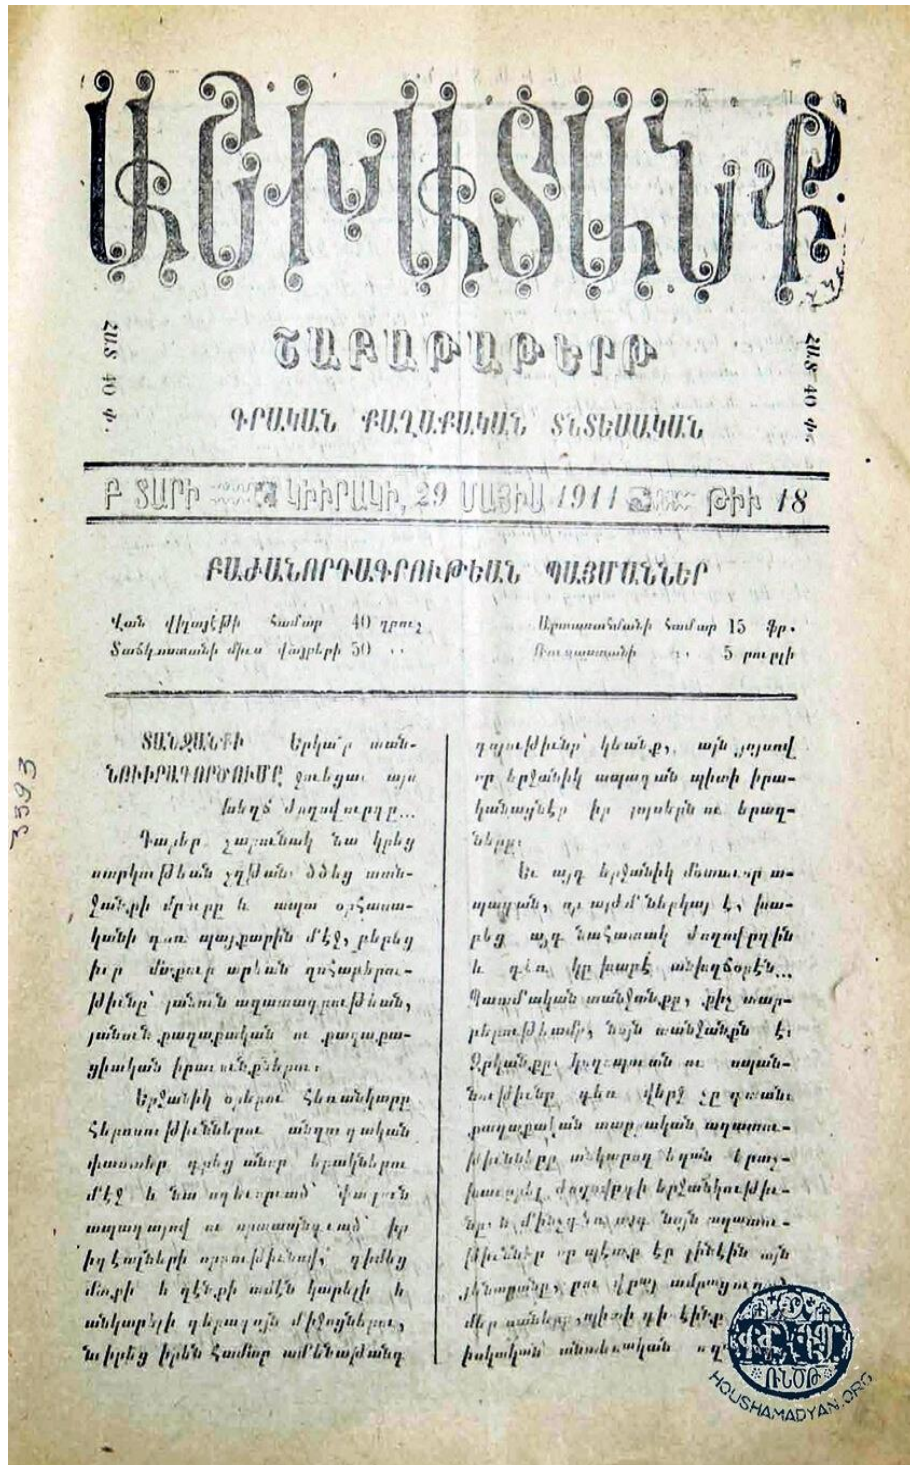 ԱՇԽԱՏԱՆՔ
ՇԱԲԱԹԱԹԵՐԹ
ՀԱՏ 40 Փ.
ՀԱՏ 40 Փ.
ԳՐԱԿԱՆ ՔԱՂԱՔԱԿԱՆ ՏՆՏԵՍԱԿԱՆ
Բ ՏԱՐԻ ԿԻՒՐԱԿԻ, 29 ՄԱՅԻՍ 1911 ԹԻՒ 18
ԲԱԺԱՆՈՐԴԱԳՐՈՒԹԵԱՆ ՊԱՅՄԱՆՆԵՐ
Վան վիլայէթի համար 40 ղրուշ
Տաճկաստանի միւս վայրերի 50 ,,
Արտասահմանի համար 15 ֆր.
Ռուսաստանի ,, 5 րուբլի
ՏԱՆՋԱՆՔԻ Երկա՜ր տան-
ՆՈՒԻՐԱԳՈՐԾՈՒՄԸ ջուեցաւ այս
խեղճ ժողովուրդը...
Դարեր շարունակ նա կրեց
ստրկութեան շղթան. ծծեց տան-
ջանքի մրուրը և ապա օրհասա-
կանի դառ պայքարին մէջ, բերեց
իւր մաքուր արեան զոհաբերու-
թիւնը՝ յանուն ազատագրութեան,
յանուն քաղաքական ու քաղաքա-
ցիական իրաւունքներու։
Երջանիկ օրերու հեռանկարը
հերոսութիւններու անզուգական
փաստեր գրեց անոր էջակներու
մէջ և նա ոգեւորուած՝ փայլուն
ապագայով ու իր
իդէալների դիմեց
մտքի և զէնքի ամէն կարելի և
անկարելի գերագոյն միջոցներու,
նւիրեց իրեն համար ամենաթանգ
գոյութիւնը՝ կեանք, այն յոյսով
որ երջանիկ ապագան պիտի իրա-
կանացնէր իր յոյսերն ու երազ-
ները։
Եւ այդ երջանիկ մետաւոր ա-
պագան, որ այժմ ներկայ է, խա-
բեց այդ նահատակ ժողովրդին
և դեռ կը խաբէ անխղճօրէն...
Պատմական տանջանքը, քիչ տար-
բերութեամբ, նոյն տանջանքն է.
Զրկանքը, կեղեքումն ու սպան-
նութիւնը դեռ վերջ չը գտան.
քաղաքական ազատու-
թիւնները անկարող եղան երաշ-
խաւորել ժողովրդի երջանկութիւ-
նը. և մինչդեռ այդ նոյն ազատու-
թիւններ որ պէտք էր լինէին այն
յենարանը, որու վրայ
մեր
իսկական անտեսական
3593
HOUSHAMADYAN.ORG